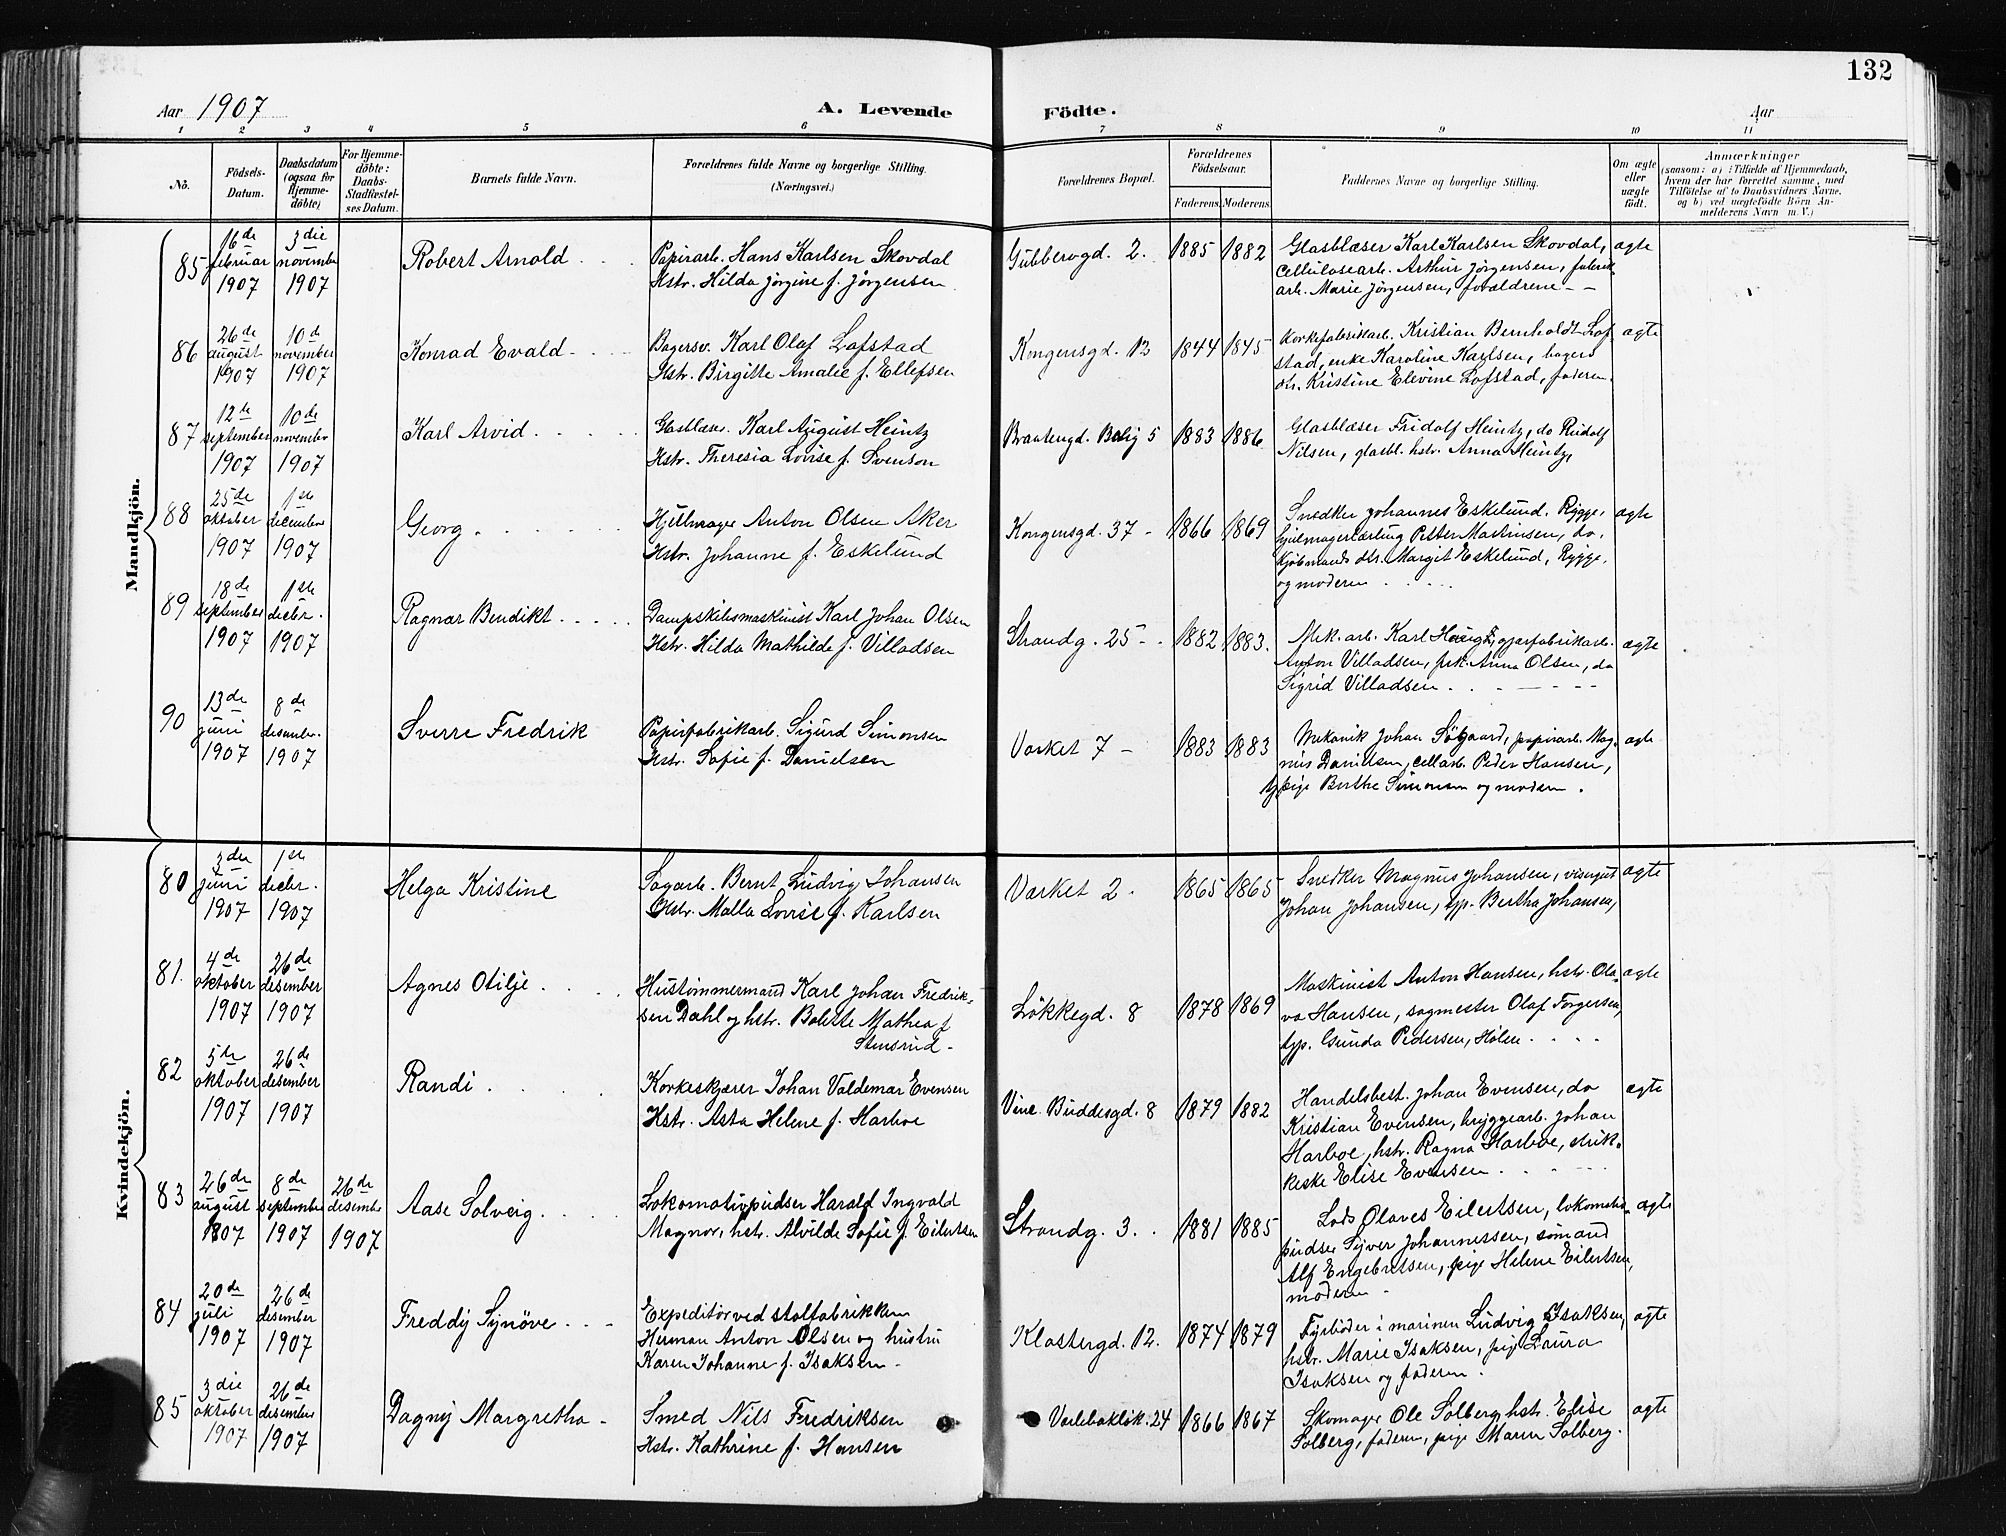 132
Aar 1907 A. Levende Födte. Aar
1 2 3 4 5 6 7 8 9 10 11
No.
Födsels-
Datum.
Daabsdatum
(ogsaa for
Hjemme-
döbte)
For Hjemme-
döbte:
Daabs-
Stadfæstel-
ses Datum.
Barnets fulde Navn.
Forældrenes fulde Navne og borgerlige Stilling.
(Næringsvei.)
Forældrenes Bopæl.
Forældrenes
Födselsaar.
Faderens. Moderens.
Faddernes Navne og borgerlige Stilling.
Om ægte
eller
uægte
født.
Anmærkninger
(saasom: a) i Tilfælde af Hjemmedaab,
hvem der har forrettet samme, med
Tilföielse af to Daabsvidners Navne.
og b) ved uægtefödte Börn An-
melderens Navn m. V.)
Mandkjön.
85
16de
februar
1907
3die
november
1907
Robert Arnold
Papirarb. Hans Karlsen Skovdal
Hstr. Hilda Jørgine f. Jørgensen
Gubberogd. 2.
1885 1882
Glasblæser Karl Karlsen Skovdal,
cellulosearb. Arthur Jørgensen, fabrik
arb. Marie Jørgensen, forældrene
ægte
86
26de
august
1907
10de
november
1907
Konrad Evald
Bagersv. Karl Olaf Lofstad
Hstr. Birgitte Amalie f. Ellefsen
Kongensgd. 12
1844 1845
Korkefabrikarb. Kristian Bernholdt Lof
stad, enke Karoline Karlsen, bager
dtr. Kristine Elevine Lofstad, faderen.
ægte
87
12te
september
1907
10de
november
1907
Karl Arvid
Glasblæs. Karl August Heintz
Hstr. Theresia Lovise f. Svenson
Braatengd. Bolig 5
1883 1886
Glasblæser Fridolf Heintz, do Rudolf
Nilsen, glasbl. hstr. Anna Heintz,
88
25de
oktober
1907
1ste
december
1907
Georg
Hjulmager Anton Olsen Aker
Hstr. Johanne f. Eskelund
Kongensgd. 37
1866 1869
Snedker Johannes Eskelund, Rygge,
hjulmagerlærling Petter Martinsen, do,
kjøbmands dtr. Margit Eskelund, Rygge,
og moderen
ægte
89
18de
september
1907
1ste
decbr.
1907
Ragnar Bendikt
Dampskibsmaskinist Karl Johan Olsen
Hstr. Hilda Mathilde f. Villadsen
Strandg. 25
1882 1883.
Mek. arb. Karl Haug, gjærfabrikarb.
Anton Villadsen, frk. Anna Olsen, do
Sigrid Villadsen
ægte
90
13de
juni
1907
8de
desember.
1907
Sverre Fredrik
Papirfabrikarb. Sigurd Simonsen
Hstr. Sofie f. Danielsen
Varket 7
1883 1883
Mekanik Johan Søgaard, papirarb. Mag-
nus Danielsen, cell.arb. Peder Hansen,
pige Berthe Simonsen og moderen.
ægte
Kvindekjön.
80
3die
juni
1907
1ste
decbr.
1907
Helga Kristine
Sagarb. Bernt Ludvig Johansen
Hstr. Malla Lovise f. Karlsen
Varket 2.
1865 1865
Snedker Magnus Johansen, visergut
Johan Johansen, typ. Bertha Johansen,
ægte
81.
4de
oktober
1907
26de
desember
1907
Agnes Otilje
Hustømmermand Karl Johan Fredrik-
sen Dahl og hstr. Bolette Mathea f
Stensrud
Løkkegd. 8
1878 1869
Maskinist Anton Hansen, hstr. Ola-
va Hansen, sagmester Olaf Torgersen,
typ. Gunda Pedersen, Holen
ægte
82
5te
oktober
1907
26de
desember
1907
Randi
Korkeskjærer Johan Valdemar Evensen
Hstr. Asta Helene f. Harboe
Vinc. Buddesgd. 8
1879 1882
Handelsbest. Johan Evensen, do
Kristian Evensen, bryggearb. Johan
Harboe, hstr. Ragna Harboe, strik-
keske Elise Evensen
ægte
83
26de
august
1907
8de
september
1907
26de
desember
1907
Aase Solveig
Lokomotivpudser Harald Ingvald
Magnor, hstr. Alvilde Sofie f. Eilertsen
Strandg. 3.
1881 1885
Lods Olaves Eilertsen, lokomotiv-
pudser Syver Johannessen, sømand
Alf Engebretsen, pige Helene Eilertsen,
moderen
ægte
84
20de
juli
1907
26de
desember
1907
Freddy Synøve
Expeditør ved stolfabrikken
Herman Anton Olsen og hustru
Karen Johanne f. Isaksen
Klostergd. 12.
1874 1879
Fyrbøder i marinen Ludvig Isaksen,
hstr. Marie Isaksen, pige Laura
Isaksen og faderen.
ægte
85
3die
oktober
1907
26de
desember
1907
Dagny Margretha
Smed Nils Fredriksen
Hstr. Kathrine f. Hansen
Varlebakløk. 24
1866 1867
Skomager Ole Solberg, hstr. Elise
Solberg, faderen, pige Maren Solberg.
ægte